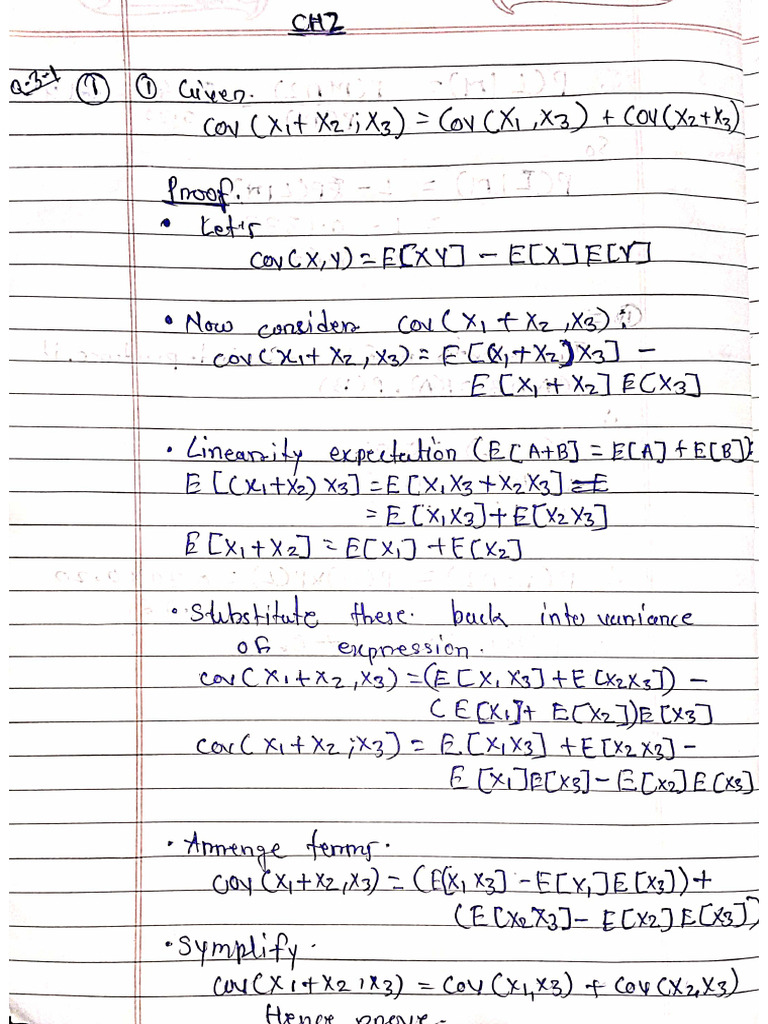 CH2
Q-3-1 ① ① Given.
Cov (X1 + X2 ; X3) = Cov (X1 , X3) + Cov (X2 + X3)
Proof.
• Let's
Cov (X, Y) = E[XY] - E[X] E[Y]
• Now consider Cov (X1 + X2 , X3) :
Cov (X1 + X2 , X3) = E [(X1 + X2) X3] -
E [X1 + X2] E[X3]
• Linearity expectation (E[A+B] = E[A] + E[B]):
E [(X1+X2) X3] = E[X1X3 + X2X3] = E
= E [X1X3] + E[X2X3]
E [X1 + X2] = E[X1] + E[X2]
• Substitute these. back into variance
of expression.
Cov (X1 + X2 , X3) = (E[X1 X3] + E [X2X3]) -
(E[X1] + E[X2]) E[X3]
Cov ( X1 + X2 ; X3) = E [X1X3] + E[X2 X3] -
E [X1] E[X3] - E[X2] E[X3]
• Arrenge terms.
Cov (X1 + X2 , X3) = (E[X1 X3] - E[X1] E[X3]) +
(E[X2 X3] - E[X2] E[X3])
• Symplify.
Cov (X1 + X2 , X3) = Cov (X1, X3) + Cov (X2, X3)
Hence prove.